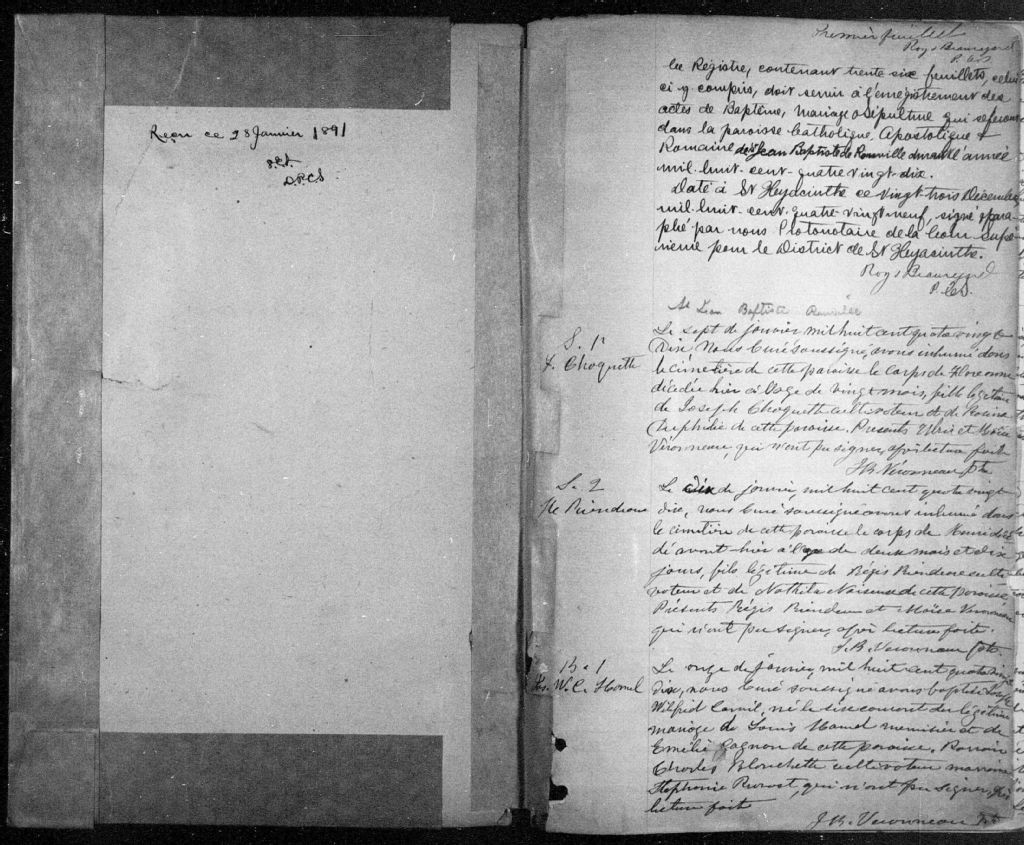 Reçu ce 28 Janvier 1891
D.P.C.S
Premier feuillet
Roy & Beauregard
P.C.S
Ce Registre, contenant trente six feuillets, celui
ci-y compris, doit servir à l'enregistrement des
actes de Baptême, Mariage & Sépulture qui se feront
dans la paroisse Catholique, Apostolique &
Romaine de St Jean Baptiste de Rouville durant l'année
mil-huit-cent-quatre vingt-dix.
Daté à St Hyacinthe ce vingt-trois Décembre
mil-huit-cent-quatre-vingt-neuf, signé & para-
phé par nous Protonotaire de la Cour Supé-
rieure pour le District de St Hyacinthe.
Roy & Beauregard
P.C.S.
St Jean Baptiste Rouville
S. 1r
F. Choquette
Le sept de janvier mil huit cent quatre vingt
dix, Nous Curé soussigné, avons inhumé dans
le cimetière de cette paroisse le corps de
décédée hier à l'age de vingt mois, fille légitime
de Joseph Choquette cultivateur et de Rosina
de cette paroisse. Présents Ulric et Moïse
Véronneau, qui n'ont pu signer, après lecture faite
J.B. Véronneau Ptr
S. 2
H. Riendeau
Le dix de janvier, mil huit cent quatre vingt
dix, nous Curé soussigné avons inhumé dans
le cimetière de cette paroisse le corps de Henri décé-
dé avant-hier à l'age de deux mois et dix
jours, fils légitime de Régis Riendeau culti-
vateur et de de cette paroisse,
Présents Régis Riendeau et Moïse Véronneau
qui n'ont pu signer, après lecture faite.
J.B. Véronneau Ptr
B. 1
Jos. W. C. Hamel
Le onze de janvier, mil huit cent quatre vingt
dix, nous Curé soussigné avons baptisé Joseph
Wilfrid né le dix courant du légitime
mariage de Louis Hamel menuisier et de
Emélie Gagnon de cette paroisse. Parrain
Charles Blanchette cultivateur marraine
Stephanie Provost, qui n'ont pu signer, après
lecture faite
J.B. Véronneau Ptr